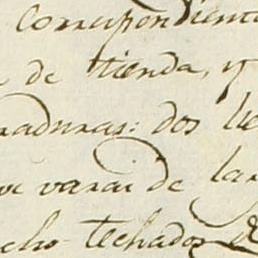 correspondiente
de tienda, y
raduras: dos
varas de lar
cho techados